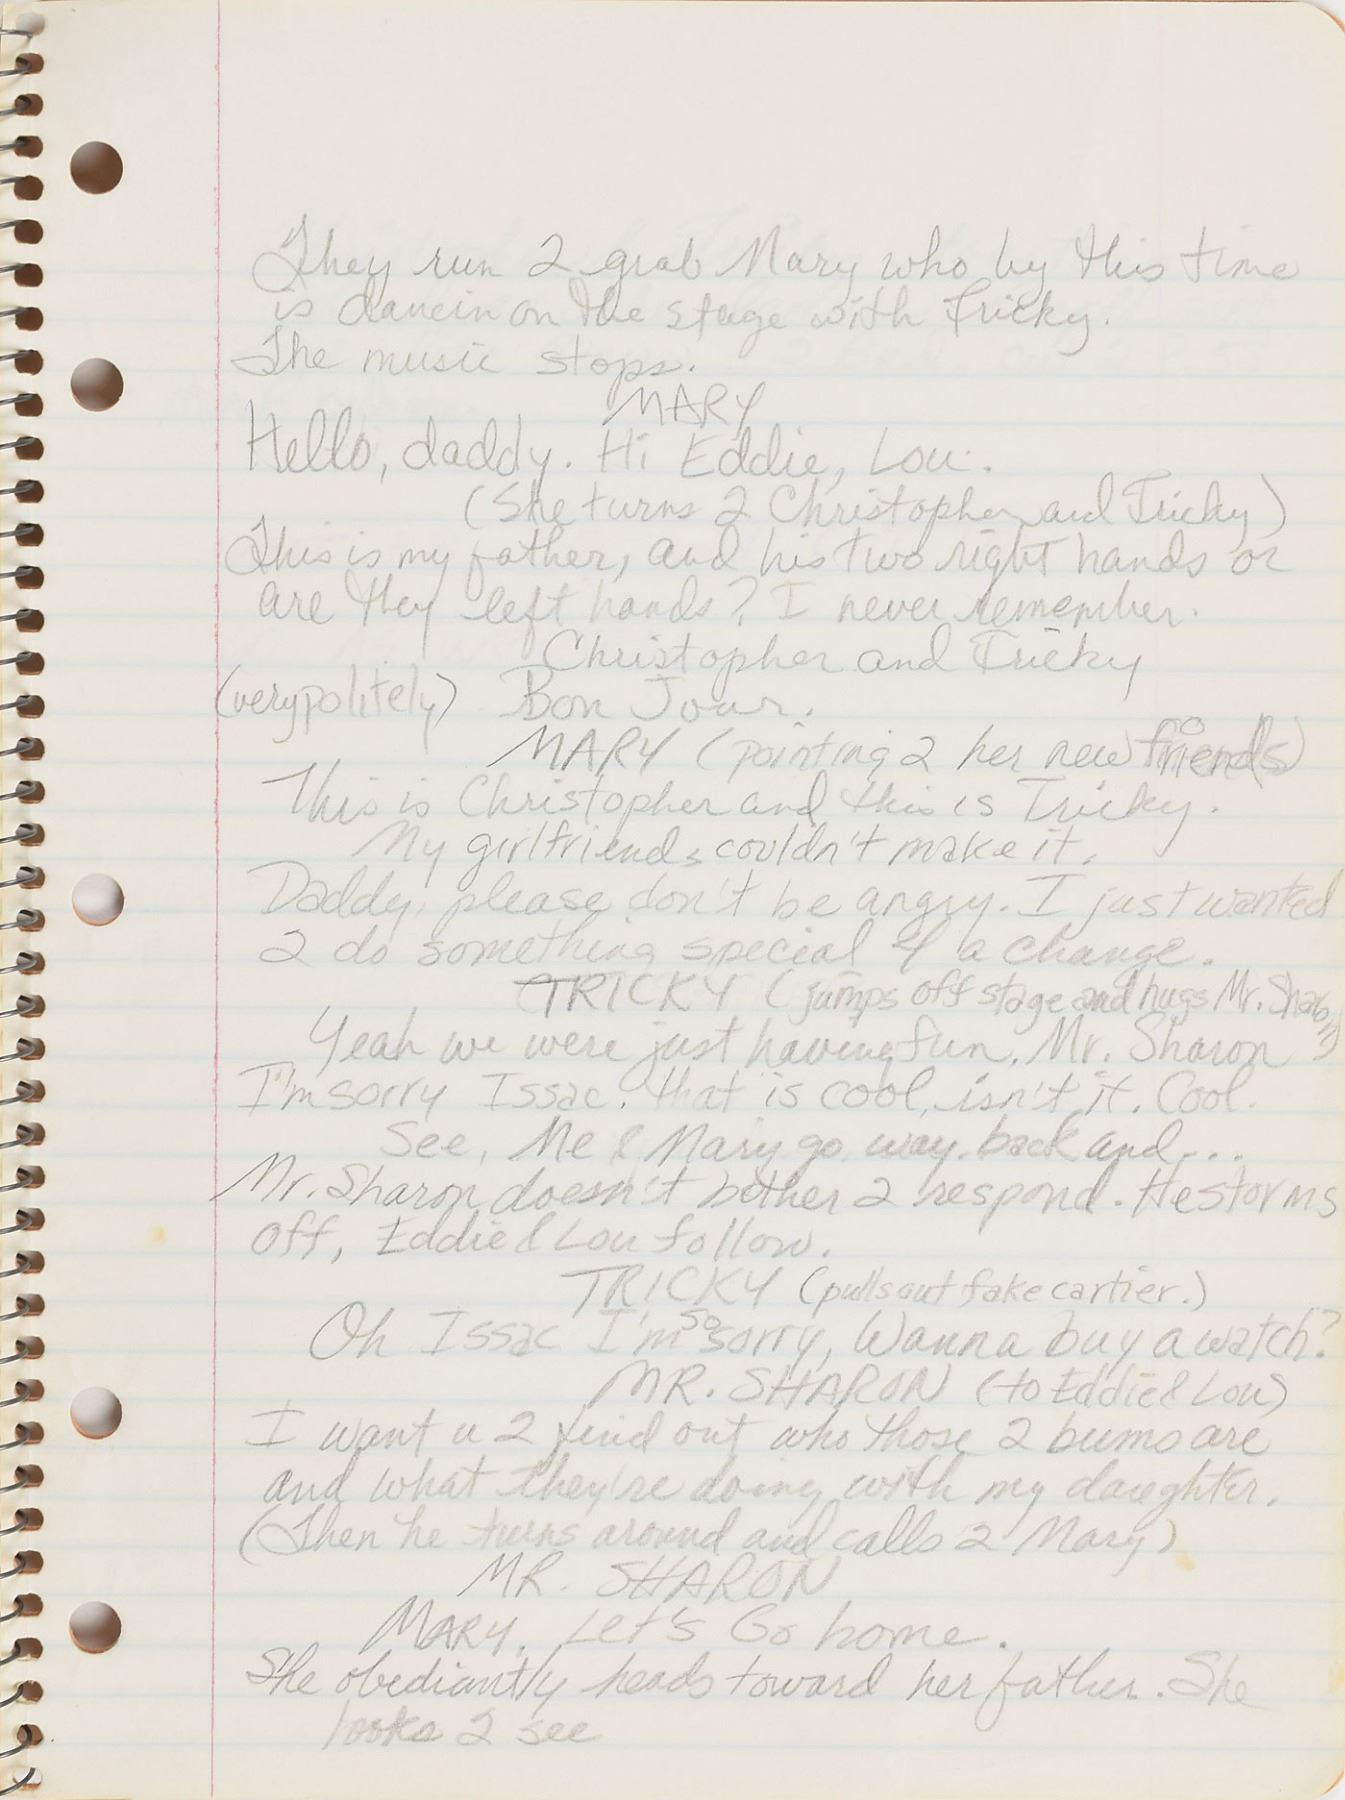 They run 2 grab Mary who by this time
is dancin on the stage with Tricky.
The music stops.
MARY
Hello, daddy. Hi Eddie, Lou.
(She turns 2 Christopher and Tricky)
This is my father, and his two right hands or
are they left hands? I never remember.
Christopher and Tricky
(very politely) Bon Jour.
MARY (pointing 2 her new friends)
This is Christopher and this is Tricky.
My girlfriends couldn't make it.
Daddy, please don't be angry. I just wanted
2 do something special 4 a change.
TRICKY (jumps off stage and hugs Mr. Sharon)
Yeah we were just having fun, Mr. Sharon
I'm sorry Issac. that is cool, isn't it. Cool.
See, Me & Mary go way back and...
Mr. Sharon doesn't bother 2 respond. He storms
off, Eddie & Lou follow.
TRICKY (pulls out fake cartier.)
Oh Issac I'm so sorry, Wanna buy a watch?
MR. SHARON (to Eddie & Lou)
I want u 2 find out who those 2 bums are
and what they're doing with my daughter.
(Then he turns around and calls 2 Mary)
MR. SHARON
MARY. Let's Go home.
She obediantly heads toward her father. She
looks 2 see